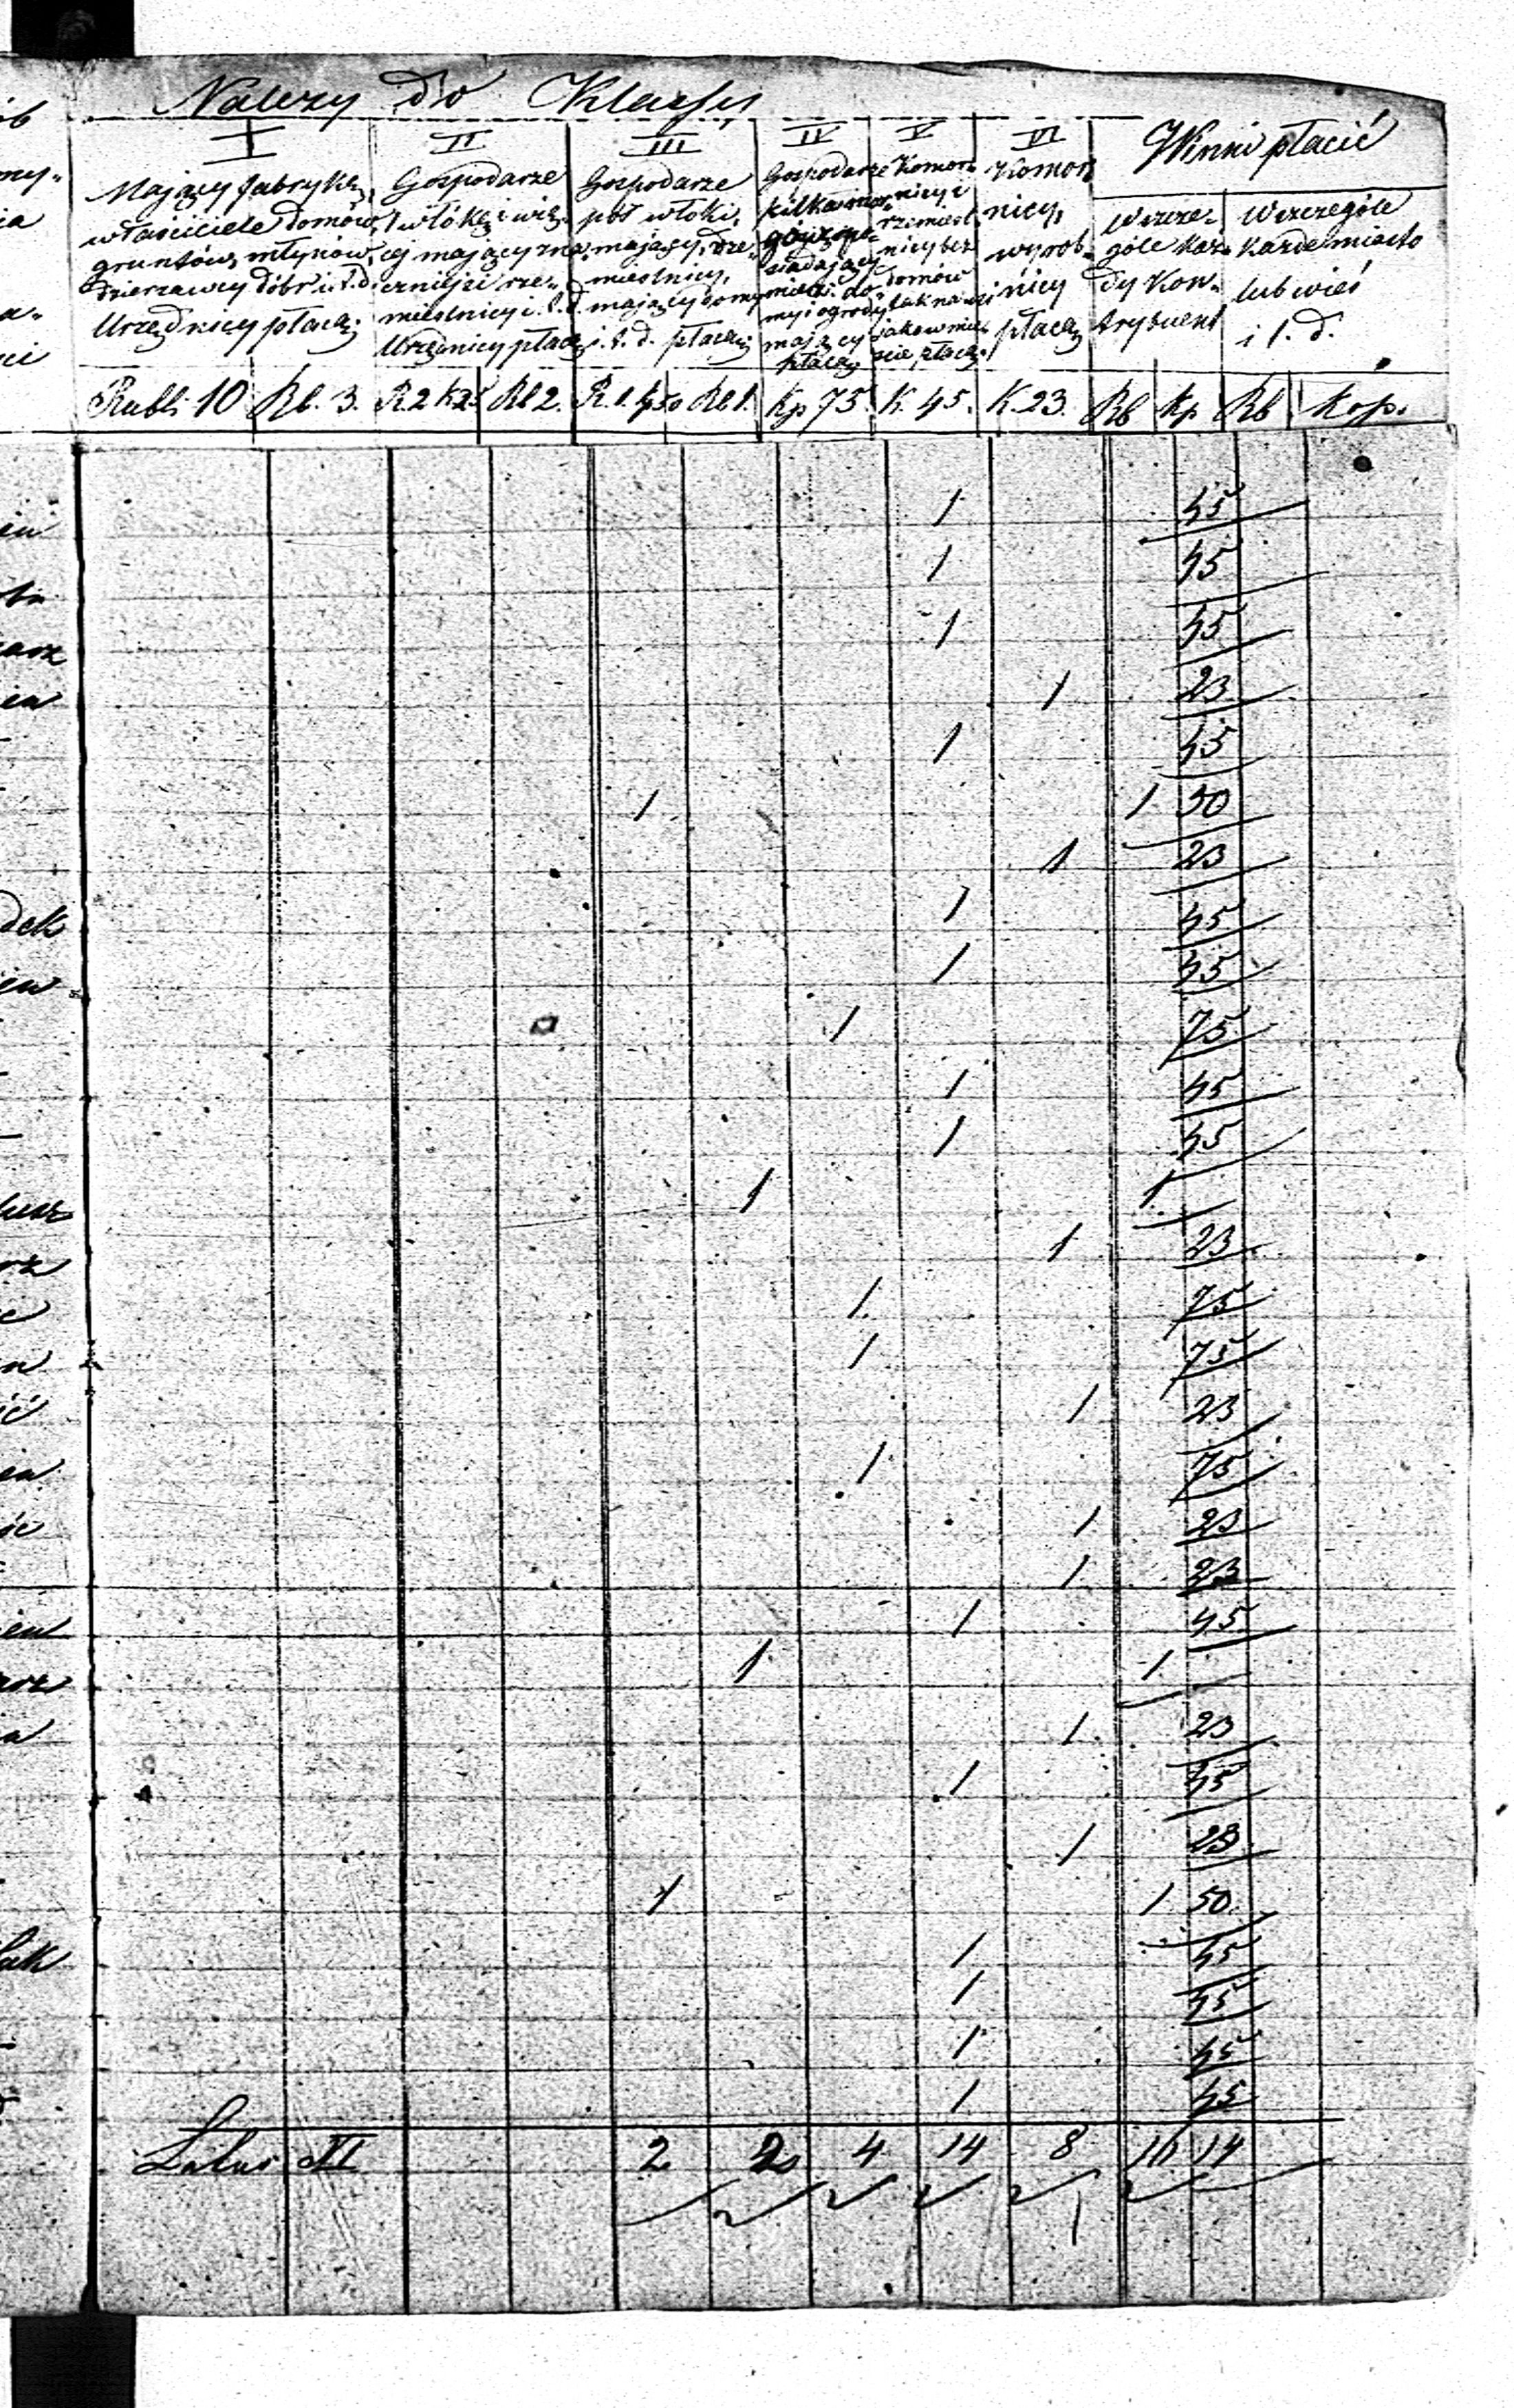 Należy do Klassy
I II III IV V VI Winni płacić
Mający fabrykę,
właściciele domów,
gruntów, młynów,
dzierzawcy dóbr i t. d.
Urzędnicy płacą:
Gospodarze
1 włókę i wię-
cej mający zna-
czniejsi rze-
mieślnicy i t. d.
Urzędnicy płacą
Gospodarze
pół włóki,
mający, rze-
mieślnicy,
mający domy
i. t. d. płacą
Gospodarze
kilka mor-
gów po-
siadający
mali do-
my i ogrody
mający
płacą
Komor-
nicy i
rzemieśl-
nicy bez
domów
tak na wsi
jako w mie-
ście płacą
Komor
nicy,
wyrob-
nicy
płacą
Wszcze-
góle każ-
dy Kon-
trybuent
Wszczególe
każde miasto
lub wieś
i t. d.
Rubli 10 Rb. 3. R. 2 k 25 Rb 2. R. 1. k 50 Rb 1. Kp 75 K. 45. K. 23. Rb Kp Rb Kop.
1 45
1 45
1 45
1 23
1 45
1 1 50
1 23
1 45
1 45
1 75
1 45
1 45
1 1
1 23
1 75
1 75
1 23
1 75
1 23
1 23
1 45
1 1
1 23
1 45
1 23
1 1 50
1 45
1 45
1 45
1 45
Latus II 2 2 4 14 8 16 14